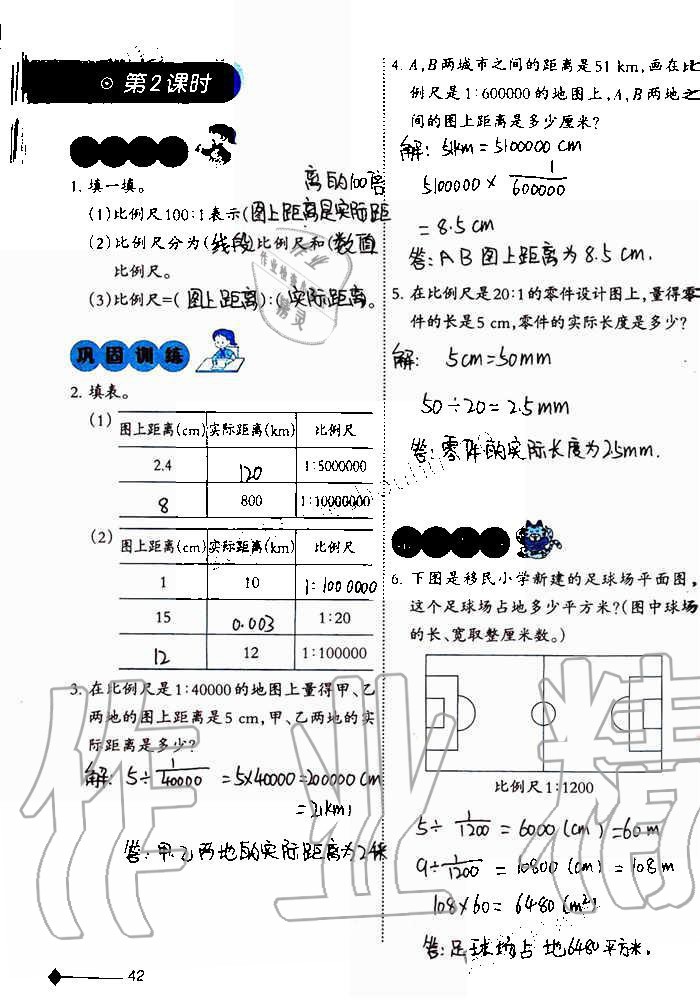 第2课时
1. 填一填。
离的100倍
(1)比例尺100:1表示(图上距离是实际距
(2)比例尺分为(线段)比例尺和(数值
比例尺。
(3)比例尺=(图上距离):(实际距离。
巩固训练
2. 填表。
(1)
图上距离(cm) 实际距离(km) 比例尺
2.4 120 1:5000000
8 800 1:10000000
(2)
图上距离(cm) 实际距离(km) 比例尺
1 10 1:1000000
15 0.003 1:20
12 12 1:100000
3. 在比例尺是1:40000的地图上量得甲、乙
两地的图上距离是5 cm,甲、乙两地的实
际距离是多少?
解: 5÷1/40000 =5×40000=200000 cm
=2(km)
答:甲乙两地的实际距离为2千米
42
4. A,B两城市之间的距离是51 km,画在比
例尺是1:600000的地图上,A,B两地之
间的图上距离是多少厘米?
解: 51km=5100000 cm
5100000×1/600000
=8.5 cm
答:AB图上距离为8.5 cm.
5. 在比例尺是20:1的零件设计图上,量得零
件的长是5 cm,零件的实际长度是多少?
解: 5cm=50mm
50÷20=2.5mm
答:零件的实际长度为2.5mm.
6. 下图是移民小学新建的足球场平面图,
这个足球场占地多少平方米?(图中球场
的长、宽取整厘米数。)
比例尺1:1200
5÷1/1200=6000(cm)=60m
9÷1/1200=10800(cm)=108m
108×60=6480(m²)
答:足球场占地6480平方米.
作业精